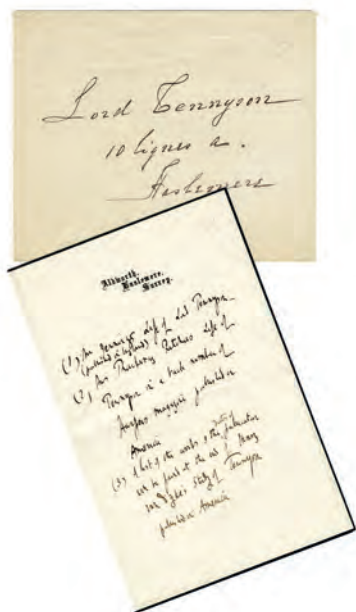 Lord Tennyson
10 lignes a.
Haslemere
Aldworth,
Haslemere,
Surrey.
(1) Mr Jennings Life of Lord Tennyson
(published in England)
(2) Mrs Ritchies Life of
Tennyson in a back number of
Harpers magazine published in
America
(3) A list of the works & dates of publication
will be found at the end of
Van Dyke's Study of Tennyson
published in America